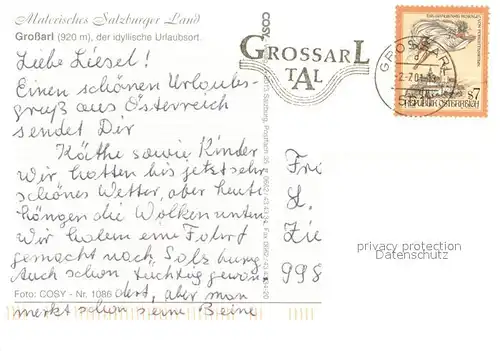 Malerisches Salzburger Land
Großarl (920 m), der idyllische Urlaubsort
Liebe Liesel!
Einen schönen Urlaubs-
gruß aus Österreich
sendet Dir
Käthe sowie Kinder
Wir hatten bis jetzt sehr
schönes Wetter, aber heute
hängen die Wolken unten
Wir haben eine Fahrt
gemacht nach Salzburg
Auch schon tüchtig gewan
dert, aber man
merkt schon seine Beine
Foto: COSY - Nr. 1086
COSY
GROSSARL
TAL
GROSSARL
REPUBLIK ÖSTERREICH
S7
Fri
L.
Zie
998
privacy protection
Datenschutz